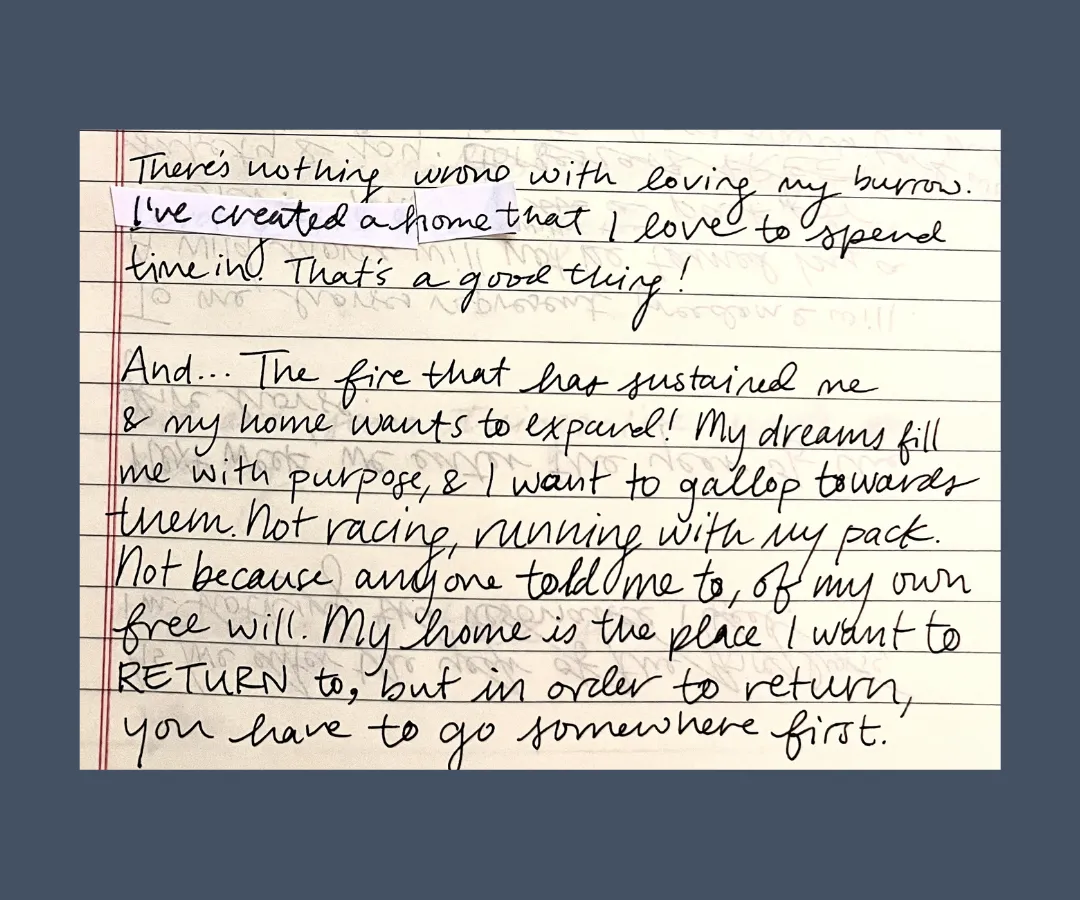 There's nothing wrong with loving my burrow.
I've created a home that I love to spend
time in! That's a good thing!
And... The fire that has sustained me
& my home wants to expand! My dreams fill
me with purpose, & I want to gallop towards
them. Not racing, running with my pack.
Not because anyone told me to, of my own
free will. My home is the place I want to
RETURN to, but in order to return,
you have to go somewhere first.